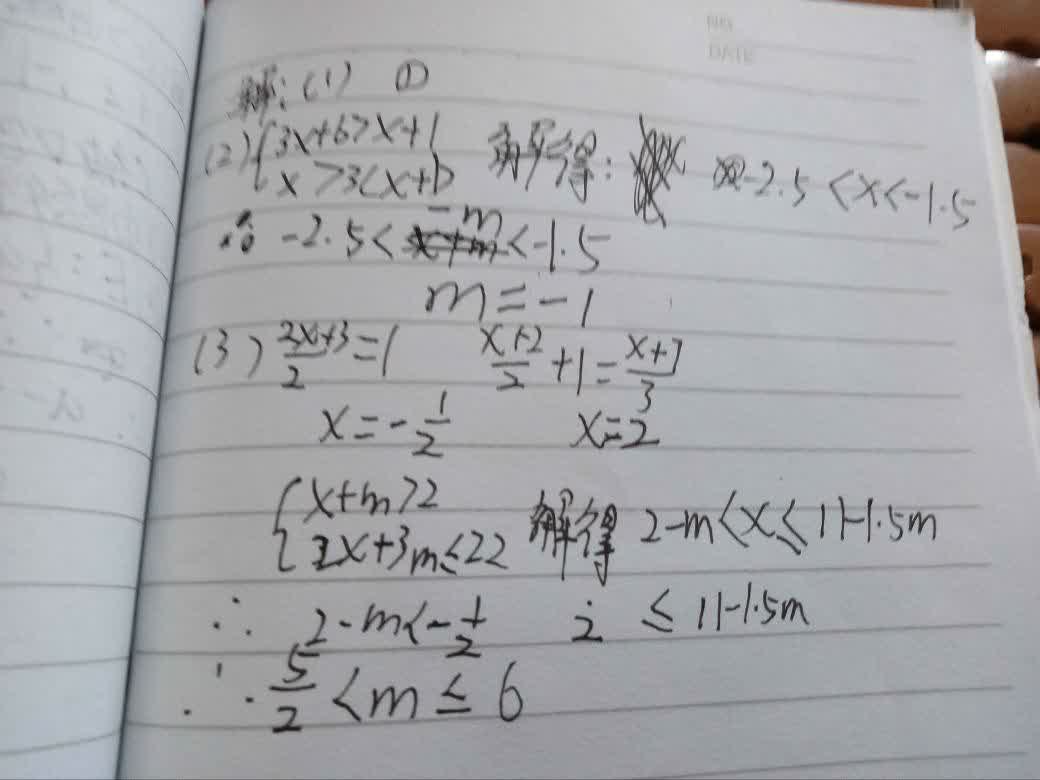 NO
DATE
解:(1) ①
(2){3x+6>x+1
x>3(x+1) 解得: -2.5<x<-1.5
∴ -2.5<-m<-1.5
m=-1
(3) \frac{2x+3}{2}=1 \frac{x+2}{2}+1=\frac{x+7}{3}
x=-\frac{1}{2} x=2
{x+m>2
2x+3m≤22 解得 2-m<x≤11-1.5m
∴ 2-m<-\frac{1}{2} 2 ≤ 11-1.5m
∴ \frac{5}{2}<m≤6